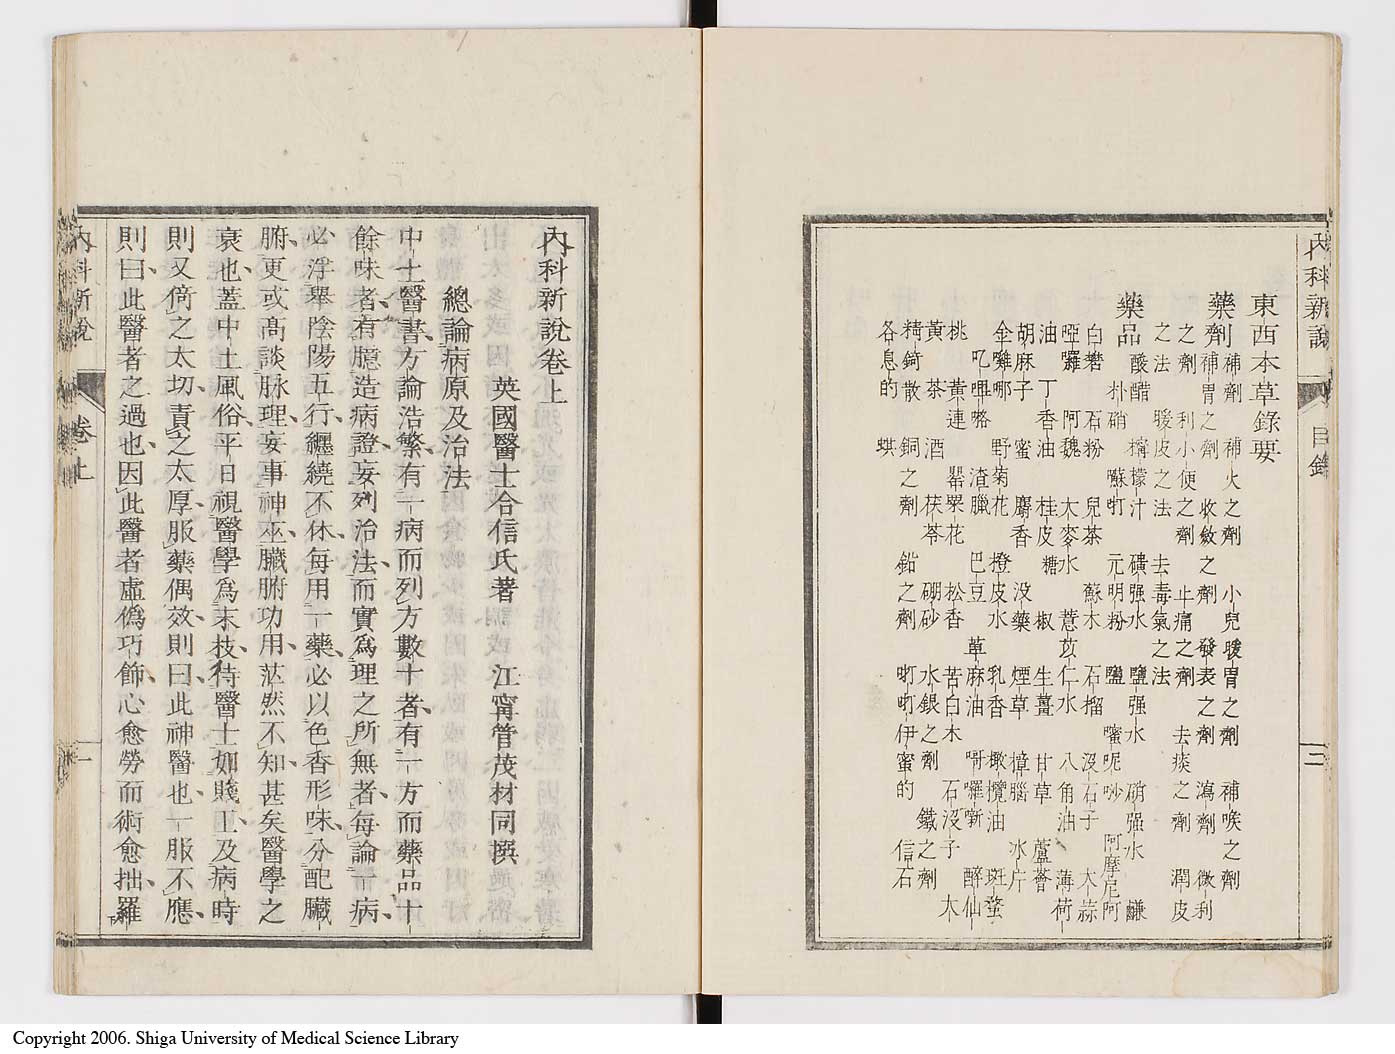 內科新說 目錄 三
東西本草錄要
藥劑 補劑 補火之劑 小兒暖胃之劑 補喉之劑
補胃之劑 收斂之劑 發表之劑 瀉劑 微利
之劑 利小便之劑 止痛之劑 去痰之劑 潤皮
之法 暖皮之法 去毒氣之法
藥品 酸醋 檸檬汁 磺强水 鹽强水 硝强水
朴硝 元明粉 鹽 嘧呢唦 阿摩尼阿
白礬 石粉 兒茶 蘇木 石榴 沒石子 大蒜
啞囉 阿魏 大麥水 薏苡仁水 八角油 薄荷
油 丁香油 桂皮 糖 椒 生薑 甘草 蘆薈
胡麻子 蜜 麝香 沒藥 煙草 樟腦 氷片
金雞哪 野菊花 橙皮水 乳香 橄欖油 斑蝥
吃嗶咯 渣臘 巴豆 萆麻油 哥囉噺 醉仙
桃 黃連 罌粟花 松香 苦白木 石沒子 木
黃 茶 酒 茯苓 硼砂 水銀之劑 鐵之劑
精錡散 銅之劑 鉛之劑 信石
各息的 蜞
內科新說卷上
英國醫士合信氏著 江寗管茂材同撰
總論病原及治法
中土醫書、方論浩繁、有一病而列方數十者、有一方而藥品十
餘味者、有臆造病證、妄列治法、而實爲理之所無者、每論一病、
必浮舉陰陽五行、纏繞不休、每用一藥、必以色香形味、分配臟
腑、更或高談脉理、妄事神巫、臟腑功用、茫然不知、甚矣醫學之
衰也、蓋中土風俗、平日視醫學爲末技、待醫士如賤工、及病時
則又倚之太切、責之太厚、服藥偶效、則曰此神醫也、一服不應、
則曰、此醫者之過也、因此醫者虛僞巧飾、心愈勞而術愈拙、羅
內科新說 卷上 一
Copyright 2006. Shiga University of Medical Science Library